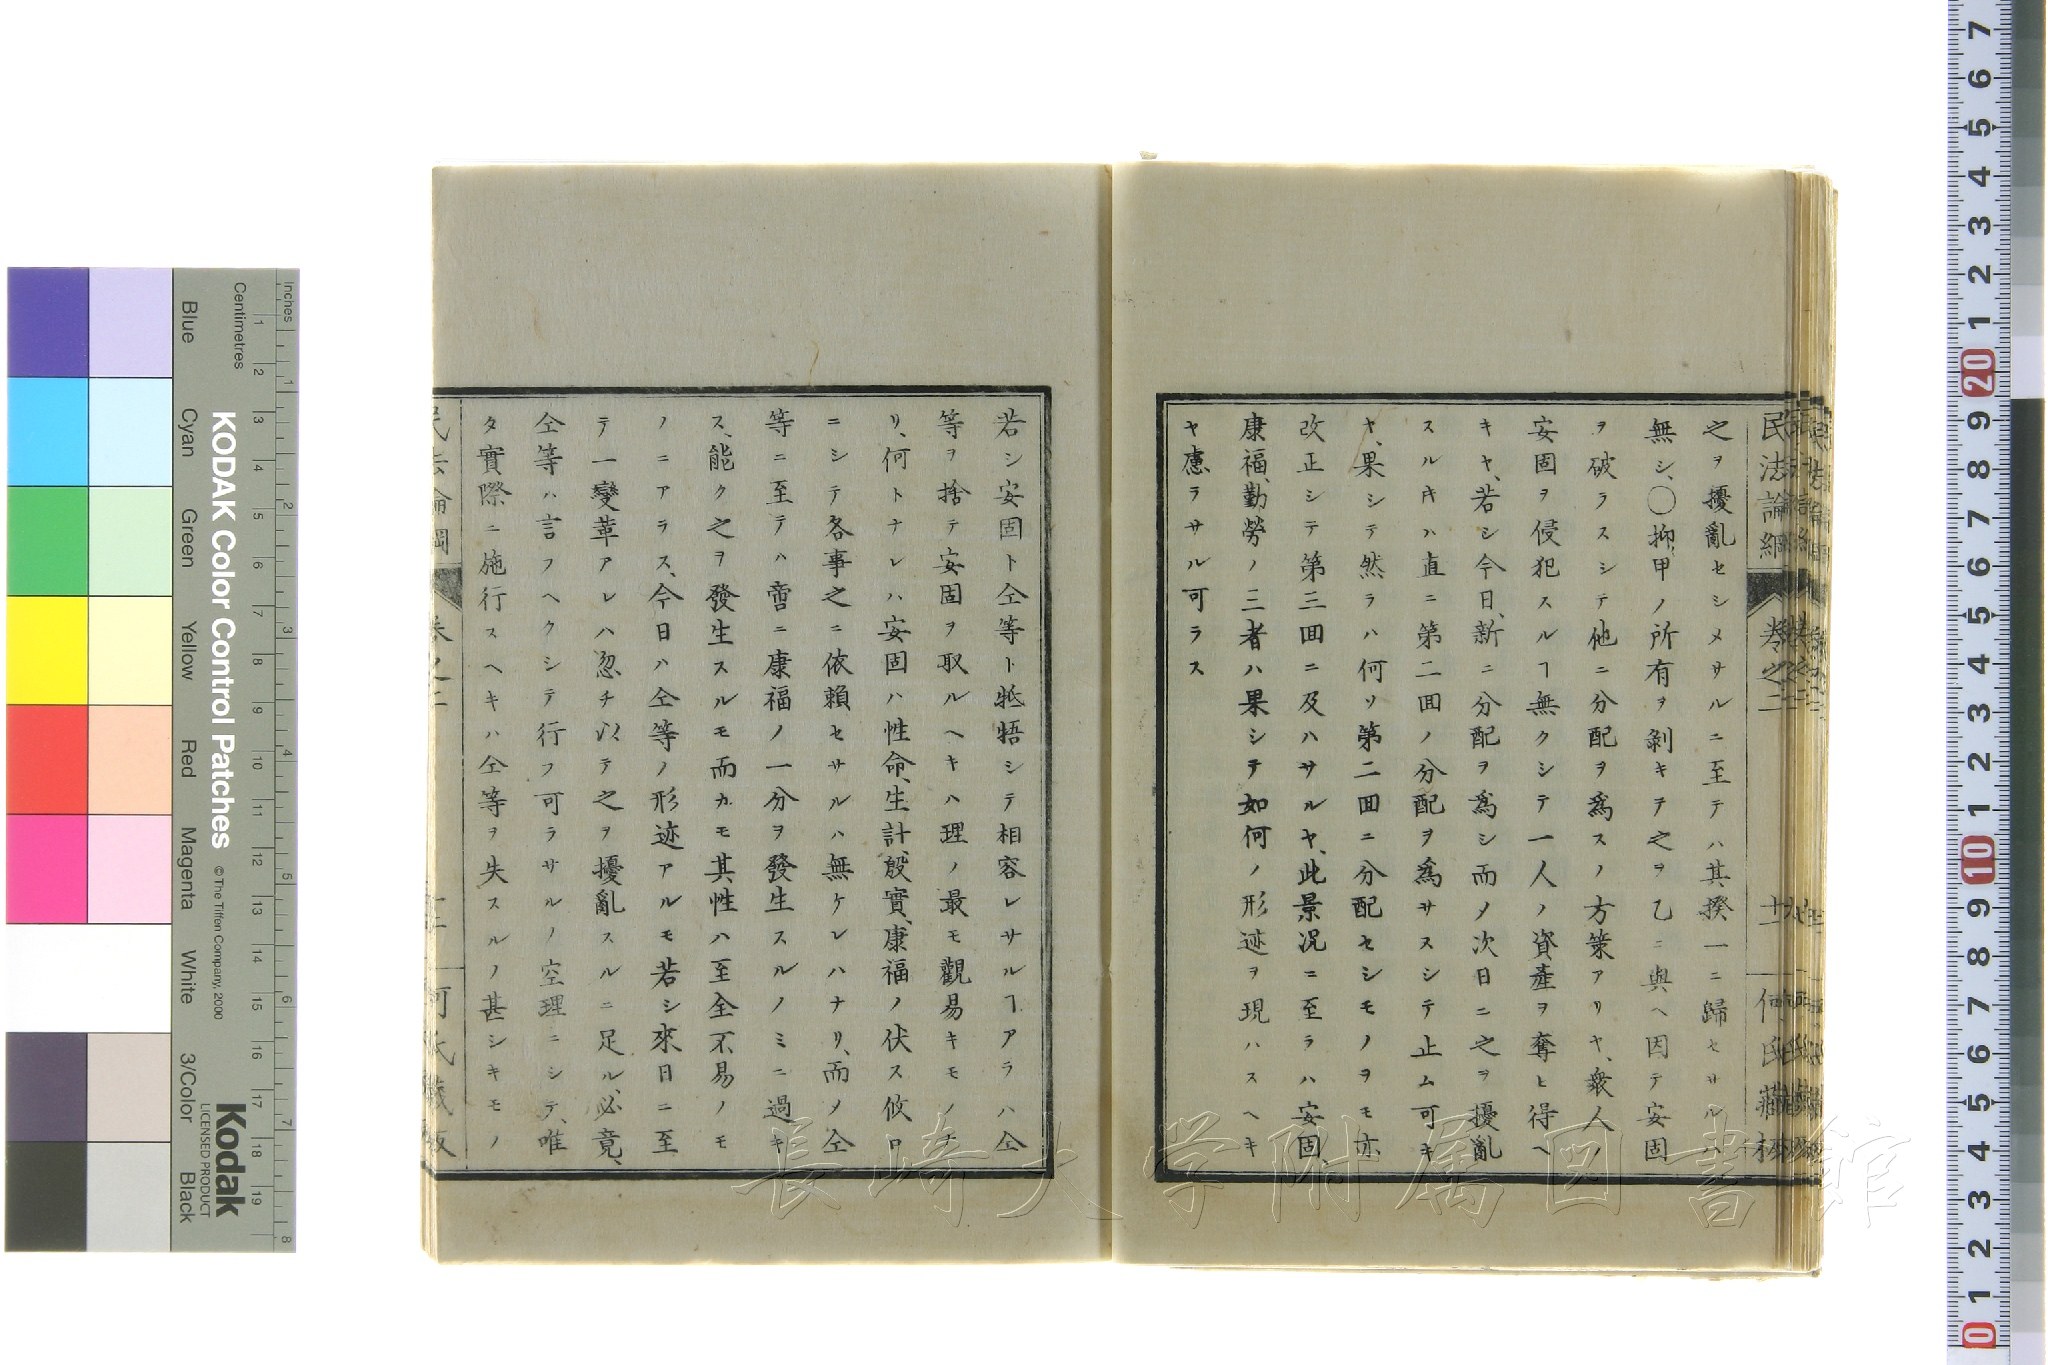 民法論綱 巻之二 十一 何氏藏板
之ヲ擾亂セシメサルニ至テハ其揆一ニ歸セサルハ
無シ、〇抑、甲ノ所有ヲ剝キテ之ヲ乙ニ與ヘ因テ安固
ヲ破ラスシテ他ニ分配ヲ爲スノ方策アリヤ、衆人ノ
安固ヲ侵犯スルヿ無クシテ一人ノ資產ヲ奪ヒ得ヘ
キヤ、若シ今日、新ニ分配ヲ爲シ而〆次日ニ之ヲ擾亂
スルキハ直ニ第二囬ノ分配ヲ爲サスシテ止ム可キ
ヤ、果シテ然ラハ何ソ第二囬ニ分配セシモノヲモ亦
改正シテ第三囬ニ及ハサルヤ、此景况ニ至ラハ安固、
康福、勤勞ノ三者ハ果シテ如何ノ形迹ヲ現ハスヘキ
ヤ慮ラサル可ラス
若シ安固ト仝等ト牴牾シテ相容レサルヿアラハ仝
等ヲ捨テ安固ヲ取ルヘキハ理ノ最モ觀易キモノナ
リ、何トナレハ安固ハ性命、生計、殷實、康福ノ伏ス攸ロ
ニシテ各事之ニ依賴セサルハ無ケレハナリ、而〆仝
等ニ至テハ啻ニ康福ノ一分ヲ發生スルノミニ過キ
ス、能ク之ヲ發生スルモ而カモ其性ハ至全不易ノモ
ノニアラス、今日ハ仝等ノ形迹アルモ若シ來日ニ至
テ一變革アレハ忽チ以テ之ヲ擾亂スルニ足ル、必竟、
仝等ハ言フヘクシテ行フ可ラサルノ空理ニシテ、唯
タ實際ニ施行スヘキハ仝等ヲ失スルノ甚シキモノ
長崎大学附属図書館
KODAK Color Control Patches
© The Tiffen Company, 2000
Kodak
LICENSED PRODUCT
Inches
Centimetres
Blue
Cyan
Green
Yellow
Red
Magenta
White
3/Color
Black